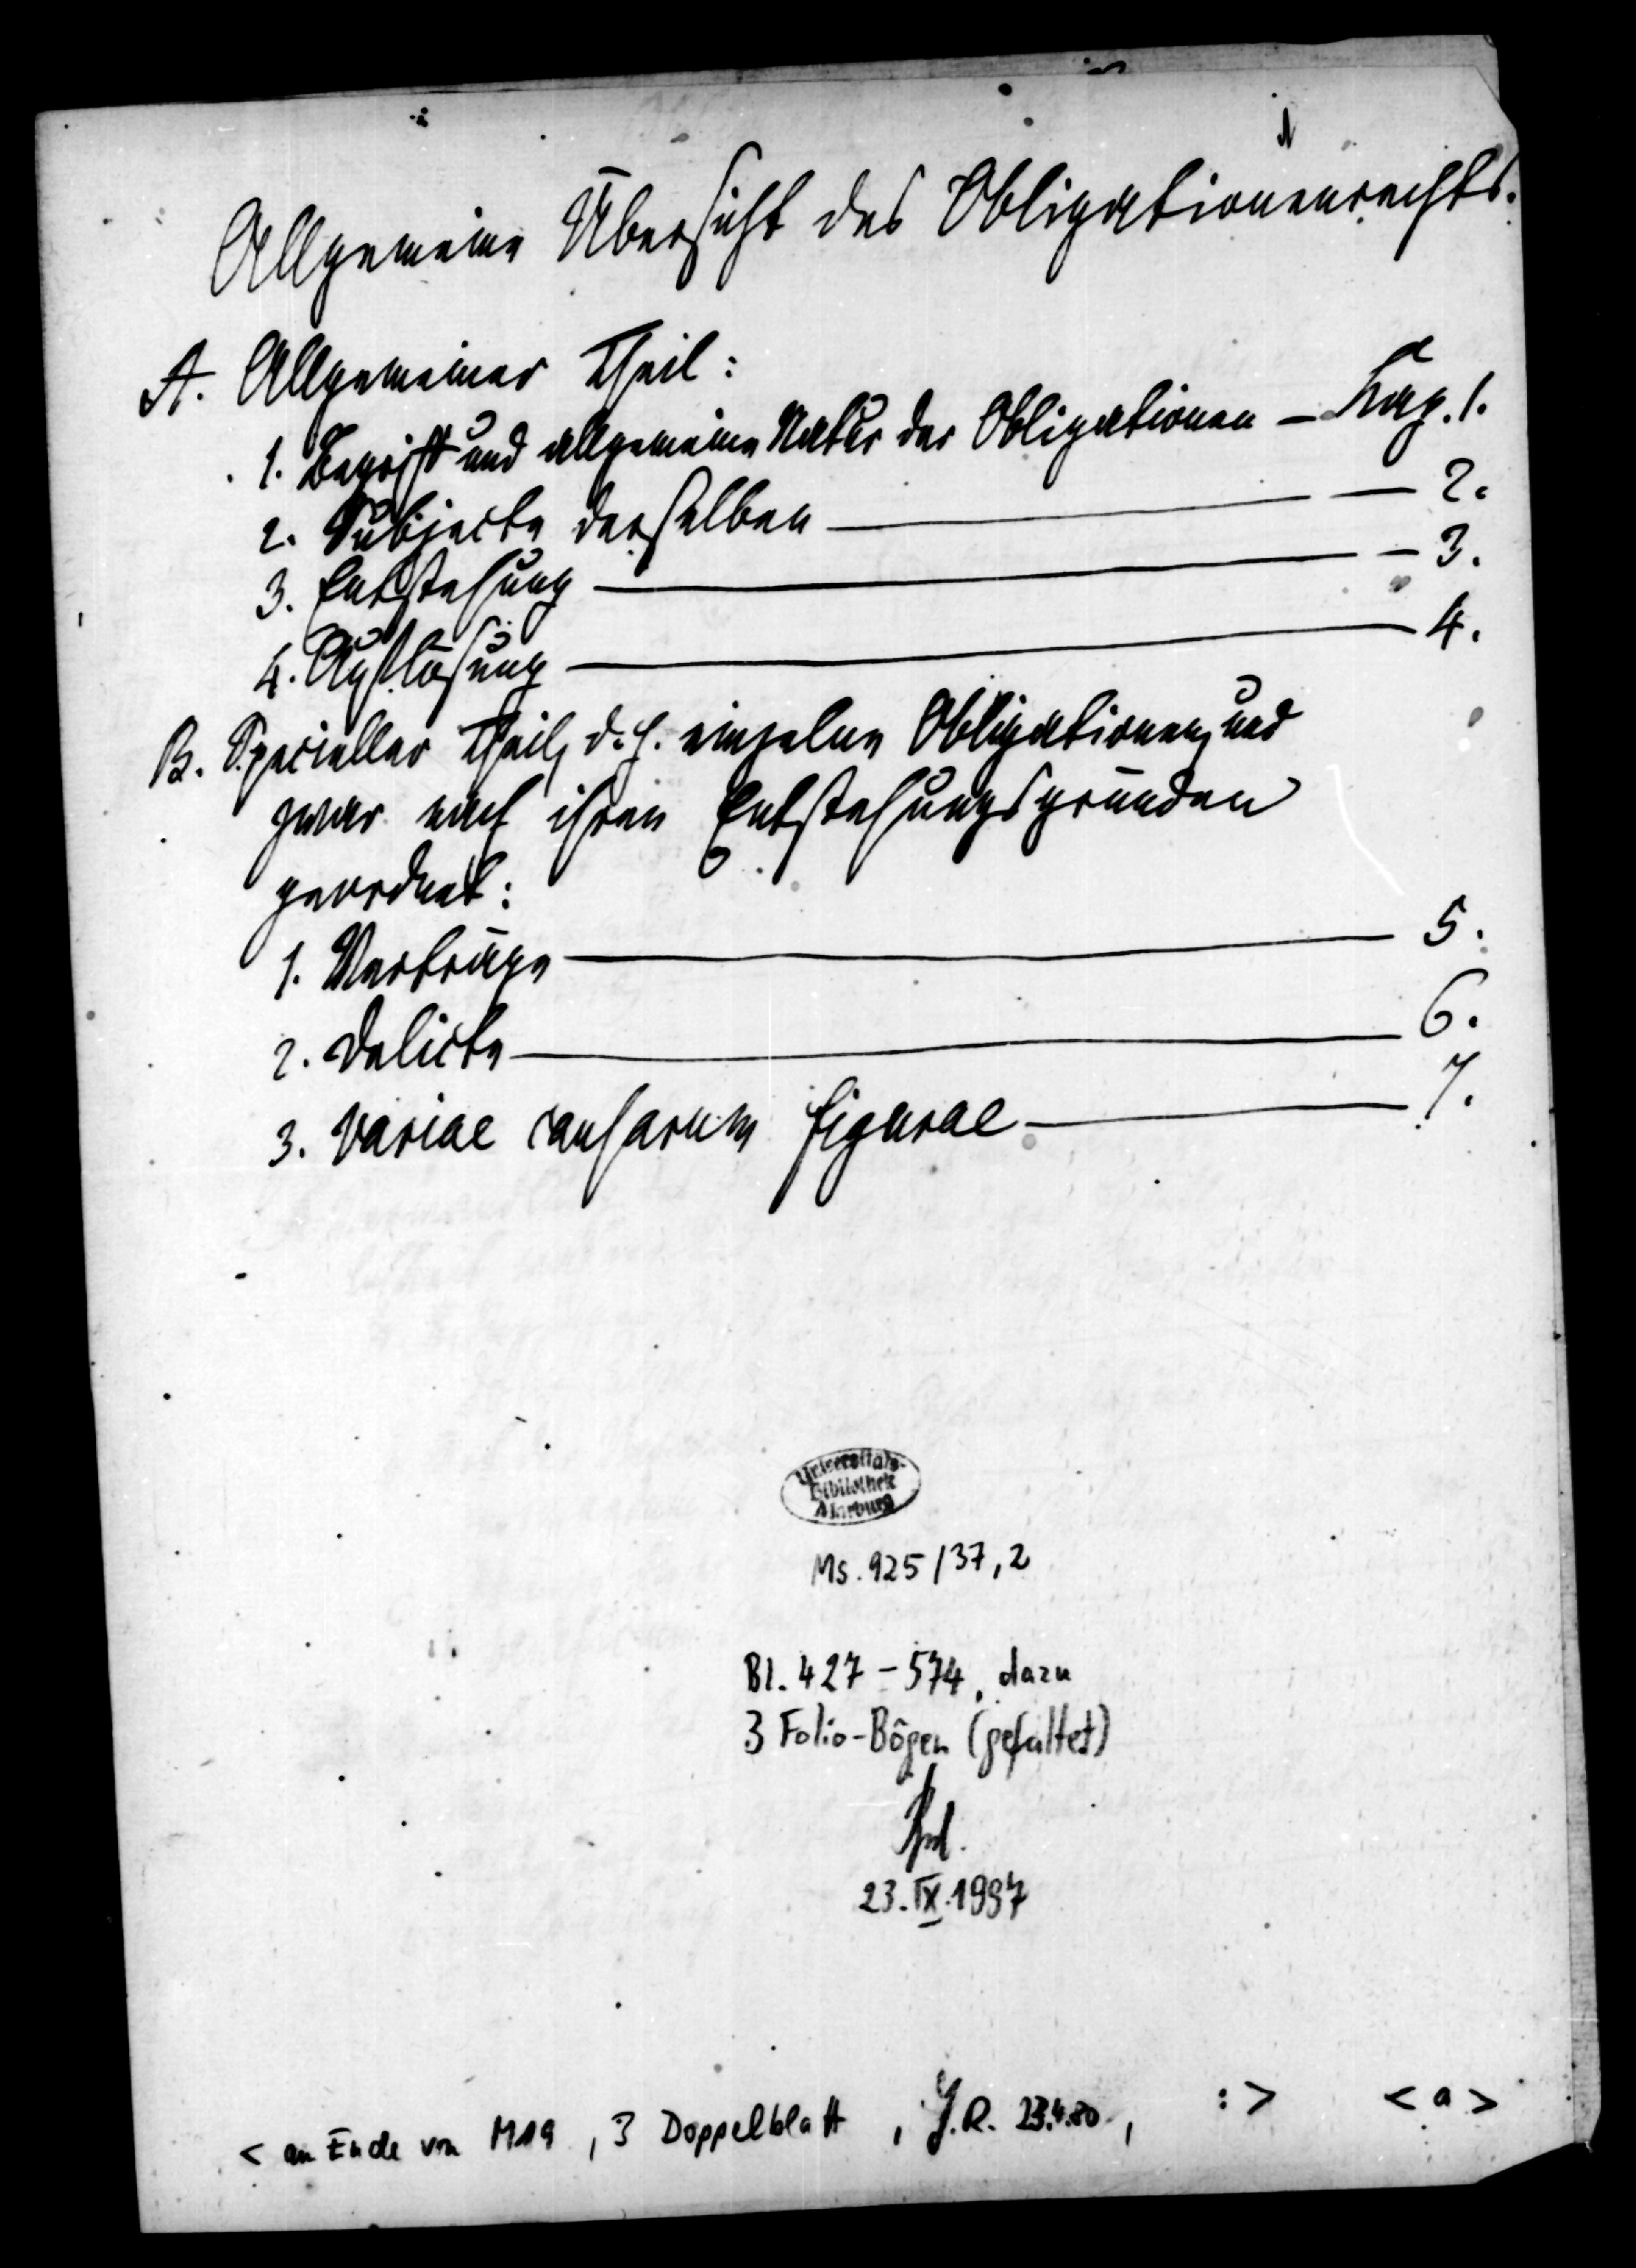 1
Allgemeine Übersicht des Obligationenrechts.
A. Allgemeiner Theil:
1. Begriff und allgemeine Natur der Obligationen — Kap. 1.
2. Subjecte derselben — 2.
3. Entstehung — 3.
4. Auflösung — 4.
B. Specieller Theil, d. h. einzelne Obligationen, und
zwar nach ihren Entstehungsgründen
geordnet:
1. Verträge — 5.
2. Delicte — 6.
3. Variae causarum figurae — 7.
Universitäts-
Bibliothek
Marburg
Ms. 925/37,2
Bl. 427-574, dazu
3 Folio-Bögen (gefaltet)
23.IX.1997
< am Ende von M19, 3 Doppelblatt, J.R. 23.4.80, :> <a>